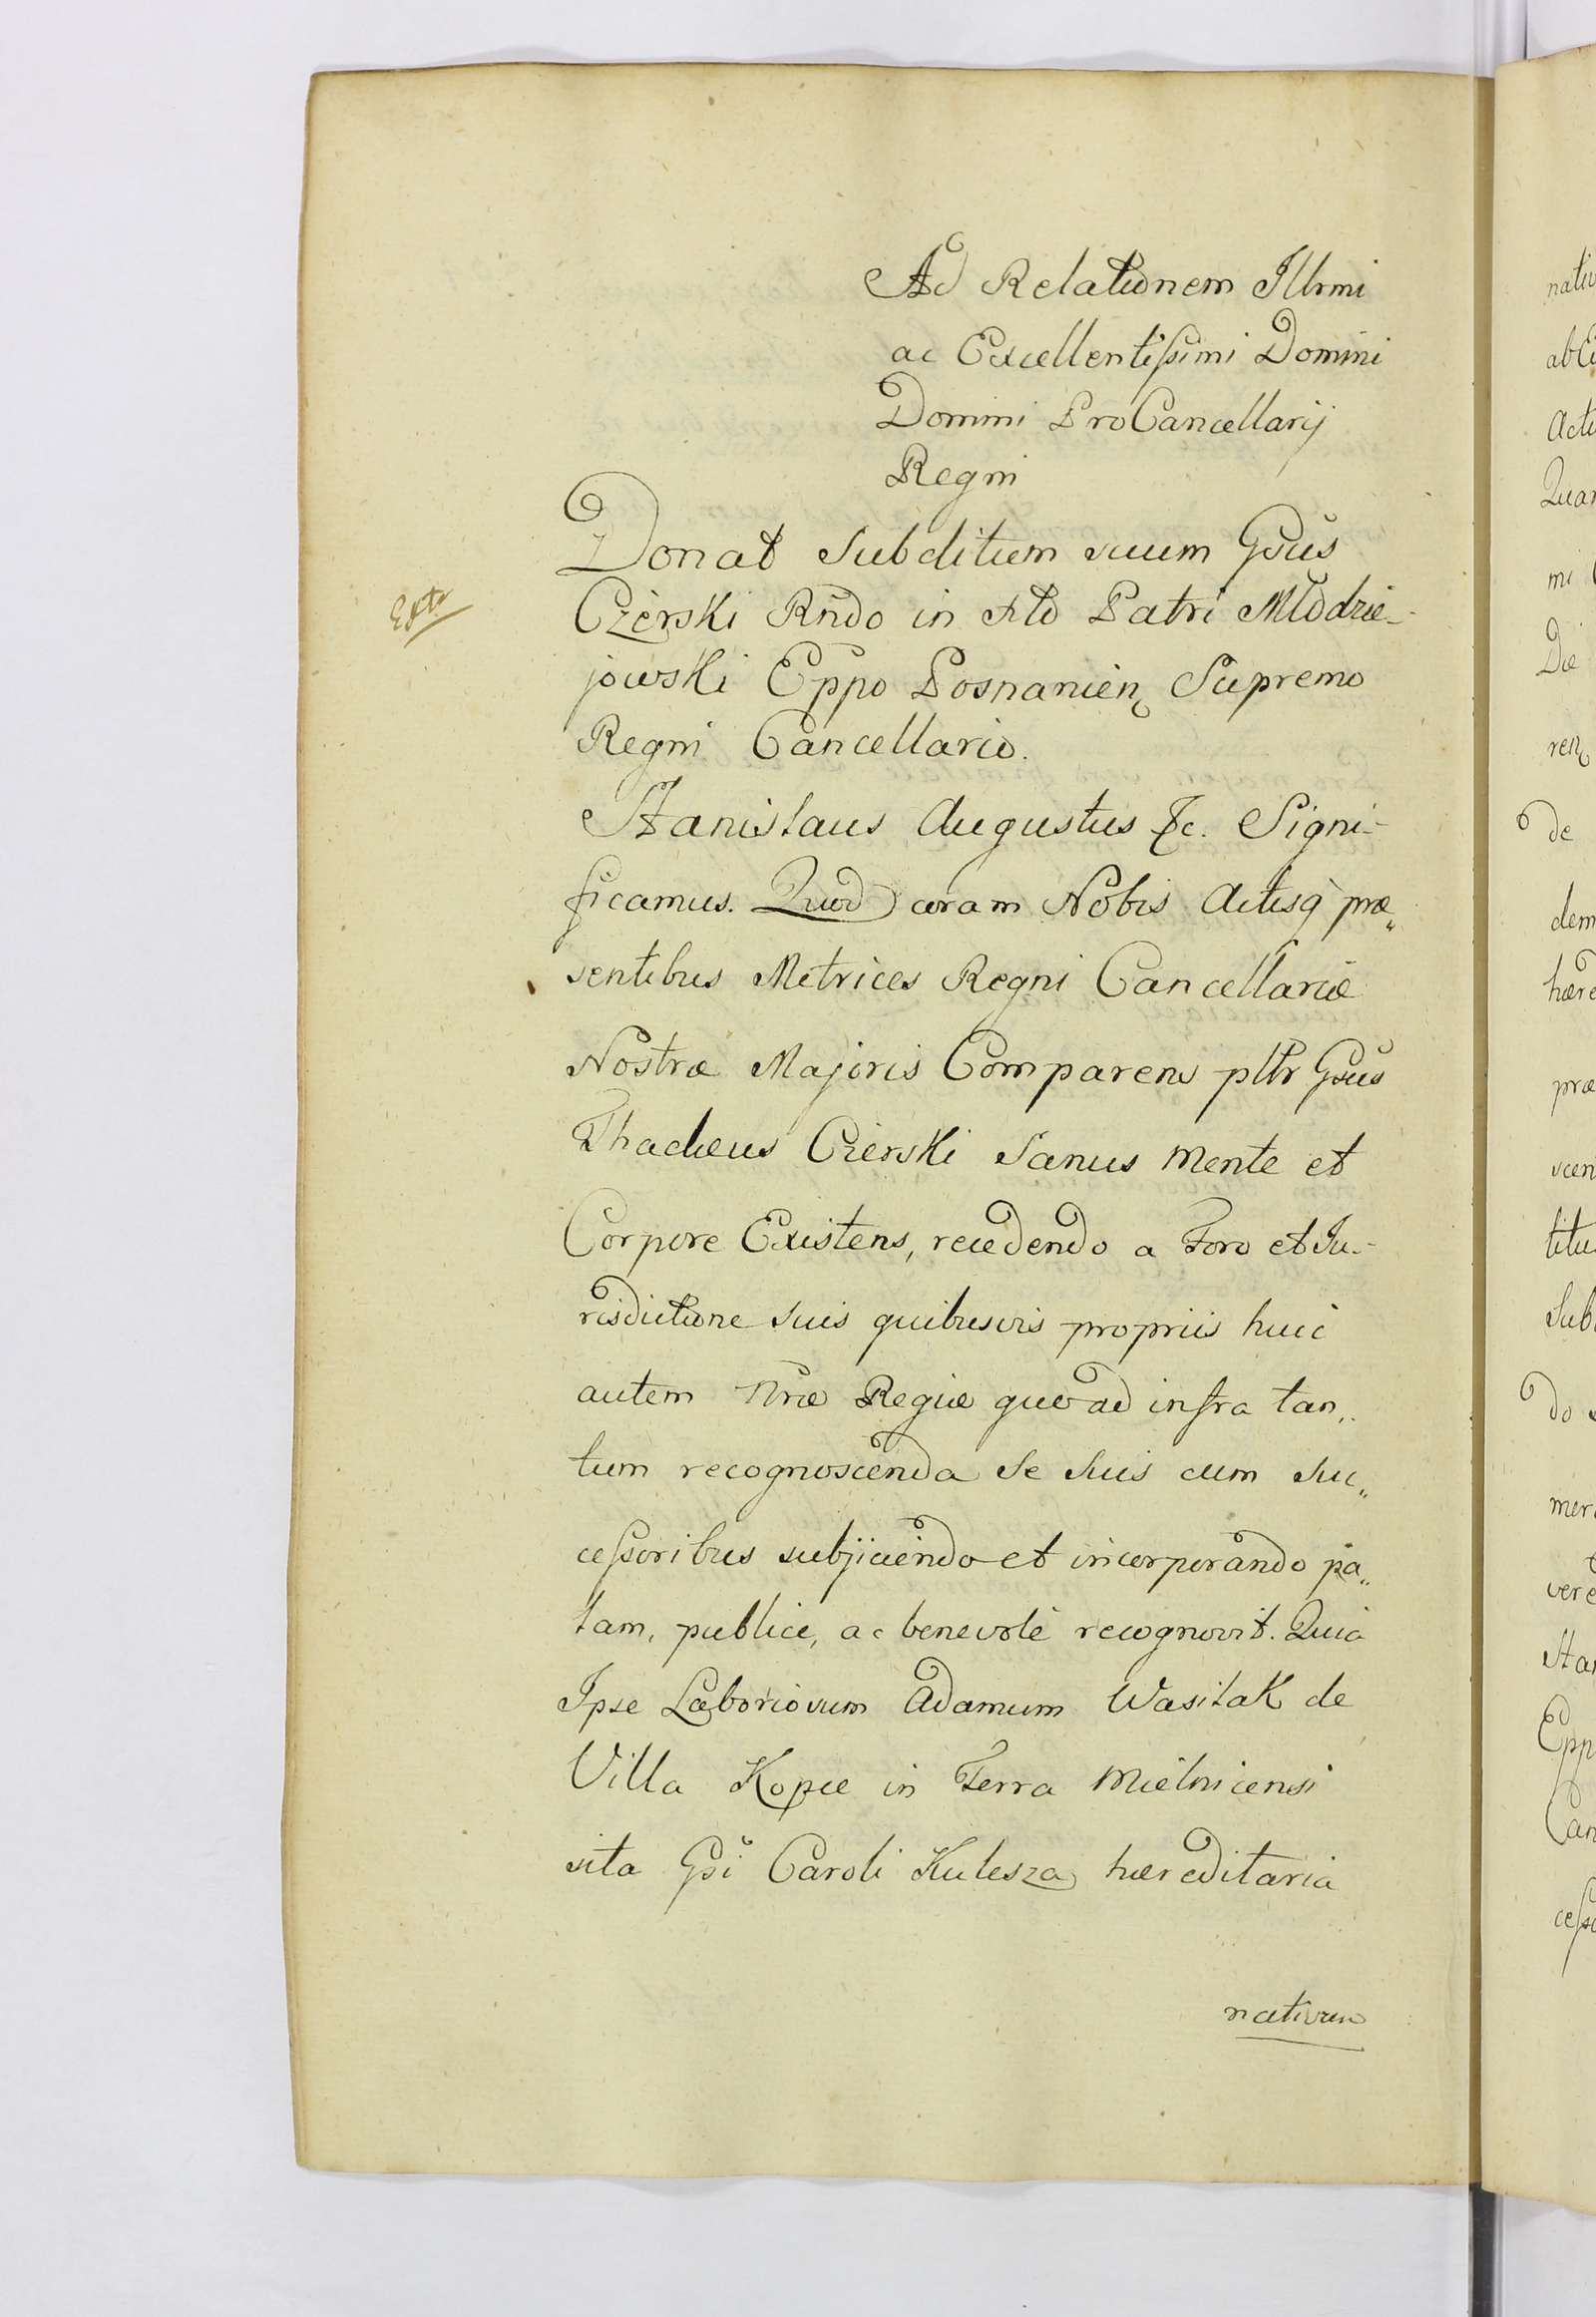 Ad Relationem Illrmi
ac Excellentissimi Domini
Domini ProCancellarij
Regni
Donat Subditum suum Gsus
Czerski Rndo in Xto Patri Młodzie-
jowski Eppo Posnanien Supremo
Regni Cancellario.
Stanislaus Augustus &c. Signi-
ficamus. Quod coram Nobis Actisq præ„
sentibus Metrices Regni Cancellariæ
Nostræ Majoris Comparens pllr Gsus
Thadeus Czerski Sanus mente et
Corpore Existens, recedendo a Foro et Ju-
risdictione suis quibusvis propriis huic
autem Nræ Regiæ quo ad infra tan„
tum recognoscenda se suis cum suc„
cessoribus subjiciendo et incorporando pa„
lam, publice, ac benevole recognovit. Quia
Ipse Laboriosum Adamum Wasilak de
Villa Kopce in Terra Mielnicensi
sita Gsi Caroli Kulesza hæreditaria
nativum
nativ
ab
Acti
Quar
mi
Die
ren
de
dem
hære
præ
scen
titu
Sub
do
mer
vere
Sta
Epp
Can
cesso